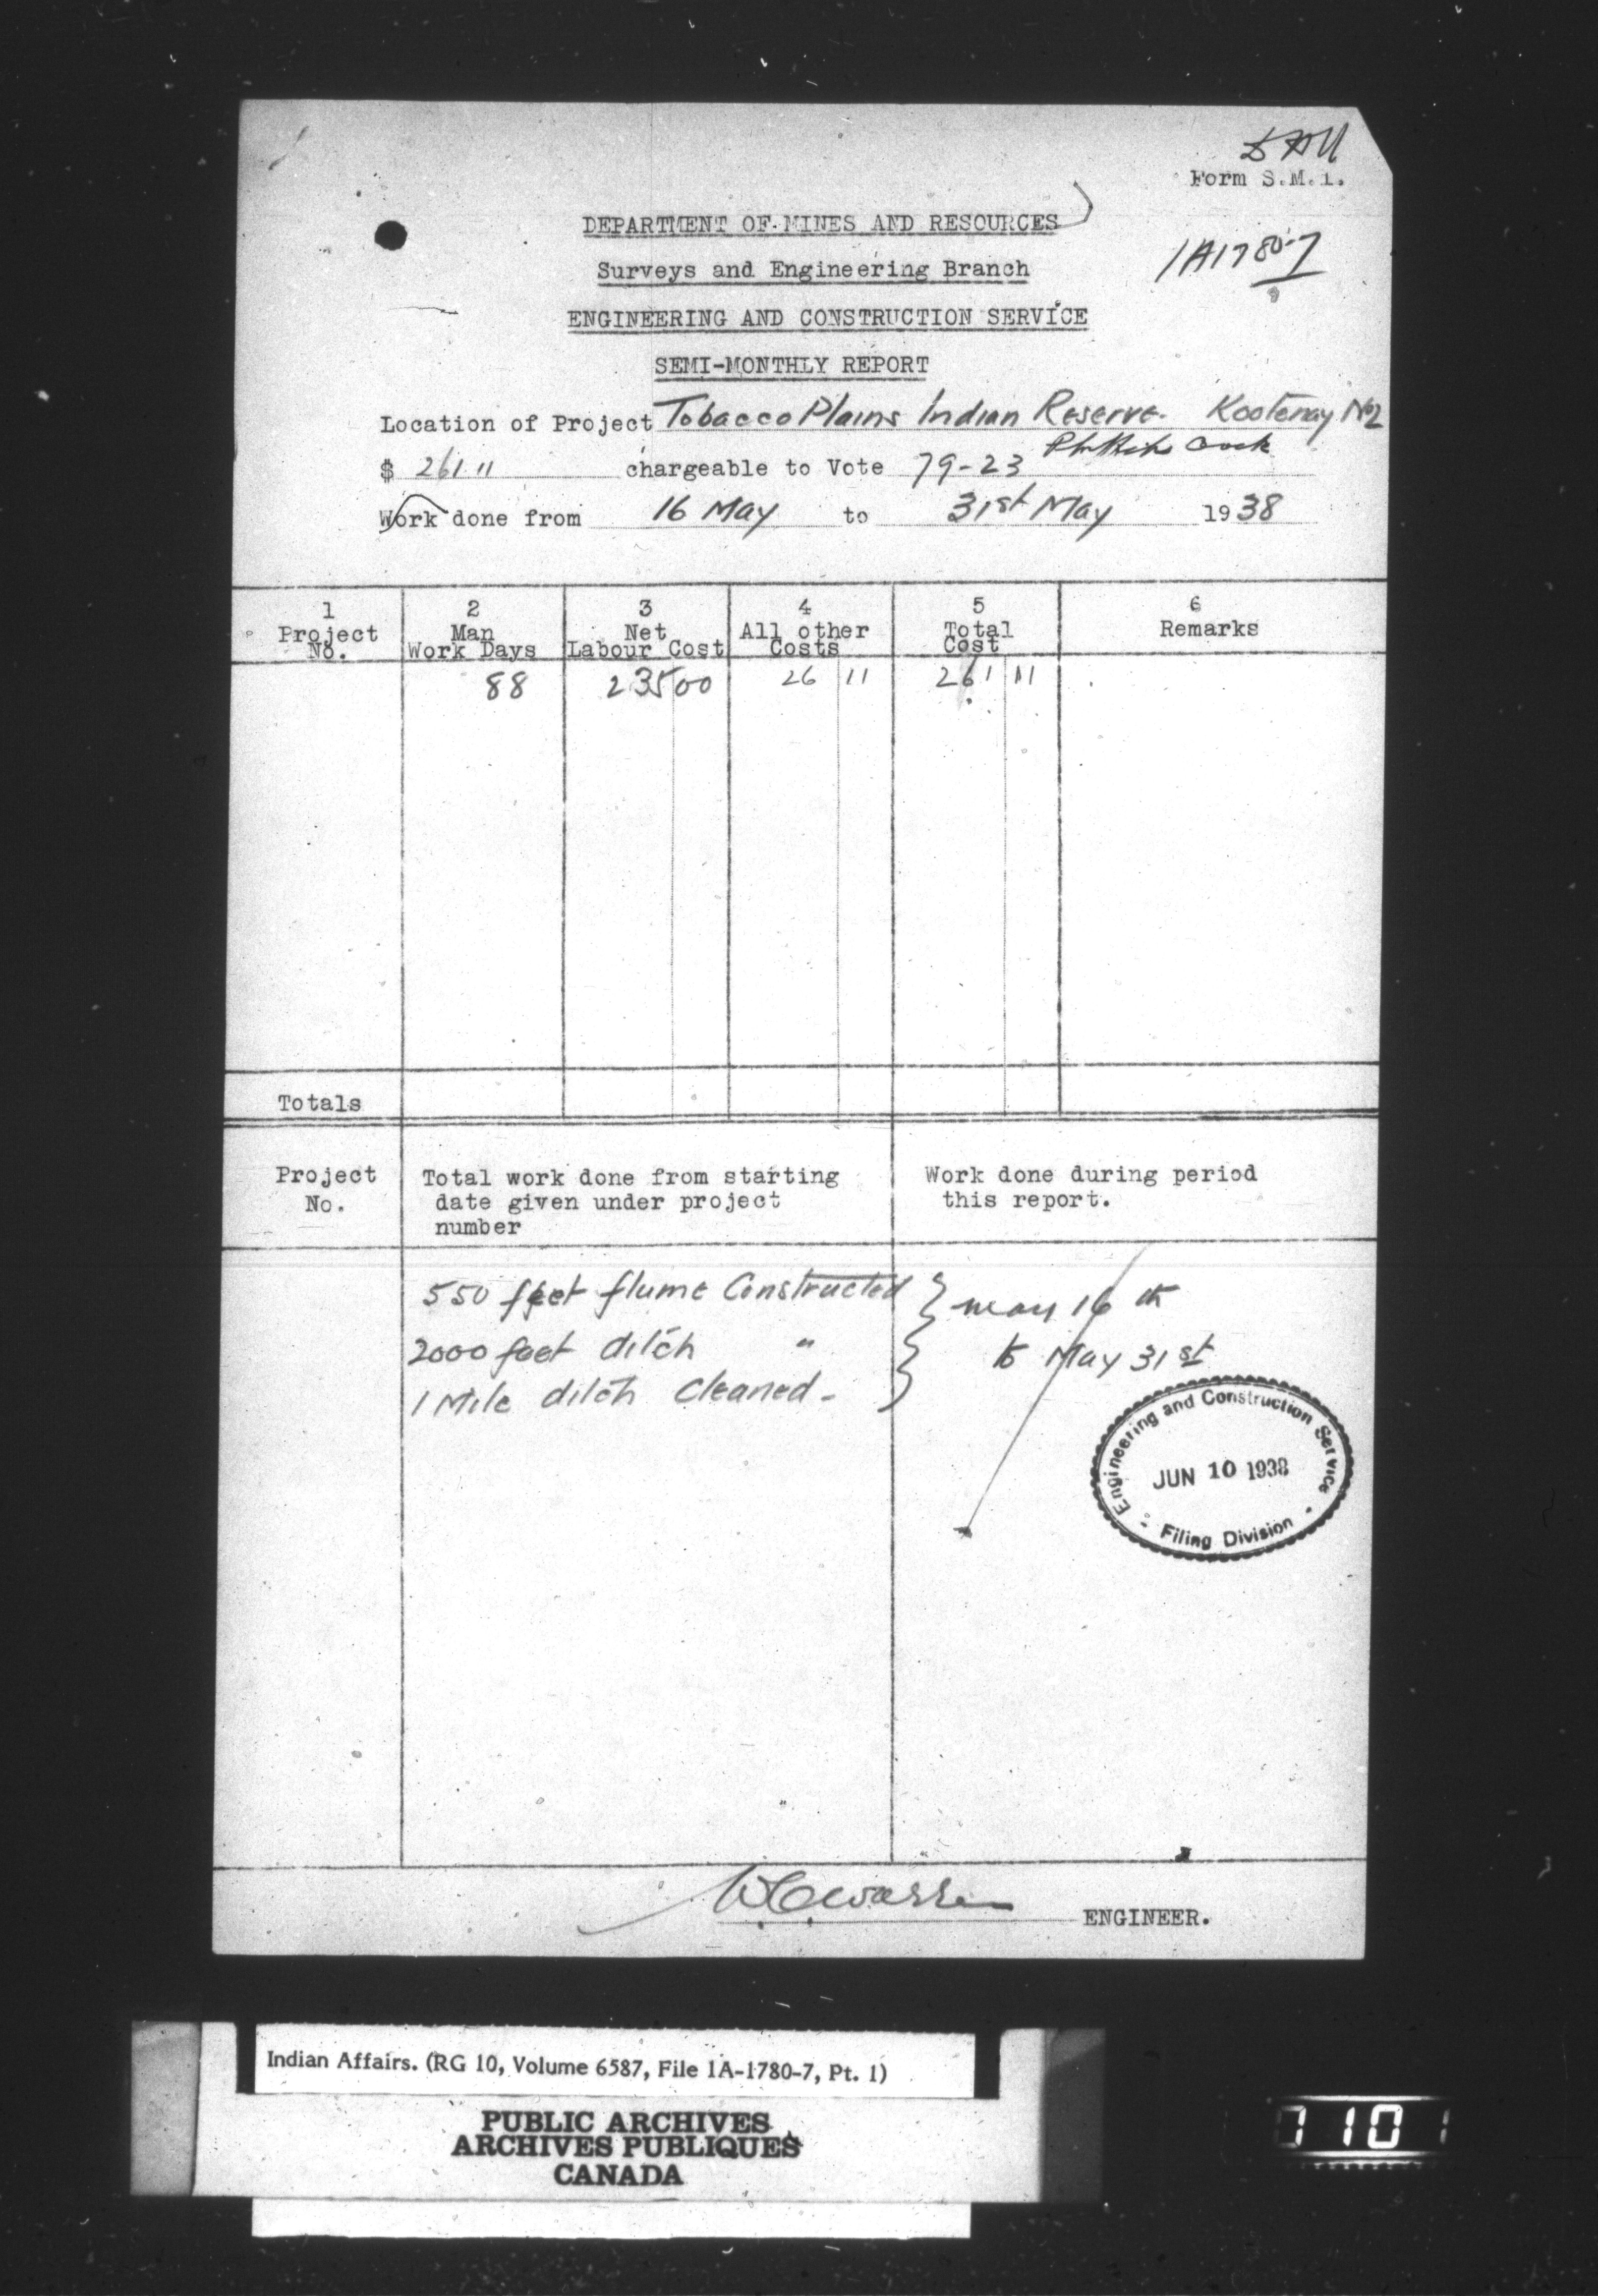 Form S.M.1.
DEPARTMENT OF MINES AND RESOURCES
1A1780-7
Surveys and Engineering Branch
ENGINEERING AND CONSTRUCTION SERVICE
SEMI-MONTHLY REPORT
Location of Project Tobacco Plains Indian Reserve. Kootenay No 2
$ 261 11 chargeable to Vote 79-23
Work done from 16 May to 31st May 1938
1 2 3 4 5 6
Project Man Net All other Total Remarks
No. Work Days Labour Cost Costs Cost
88 235 00 26 11 261 11
Totals
Project Total work done from starting Work done during period
No. date given under project this report.
number
550 feet flume Constructed } May 16th
2000 feet ditch " } to May 31st
1 Mile ditch cleaned -
Engineering and Construction Service
JUN 10 1938
Filing Division
ENGINEER.
Indian Affairs. (RG 10, Volume 6587, File 1A-1780-7, Pt. 1)
PUBLIC ARCHIVES
ARCHIVES PUBLIQUES
CANADA
7101